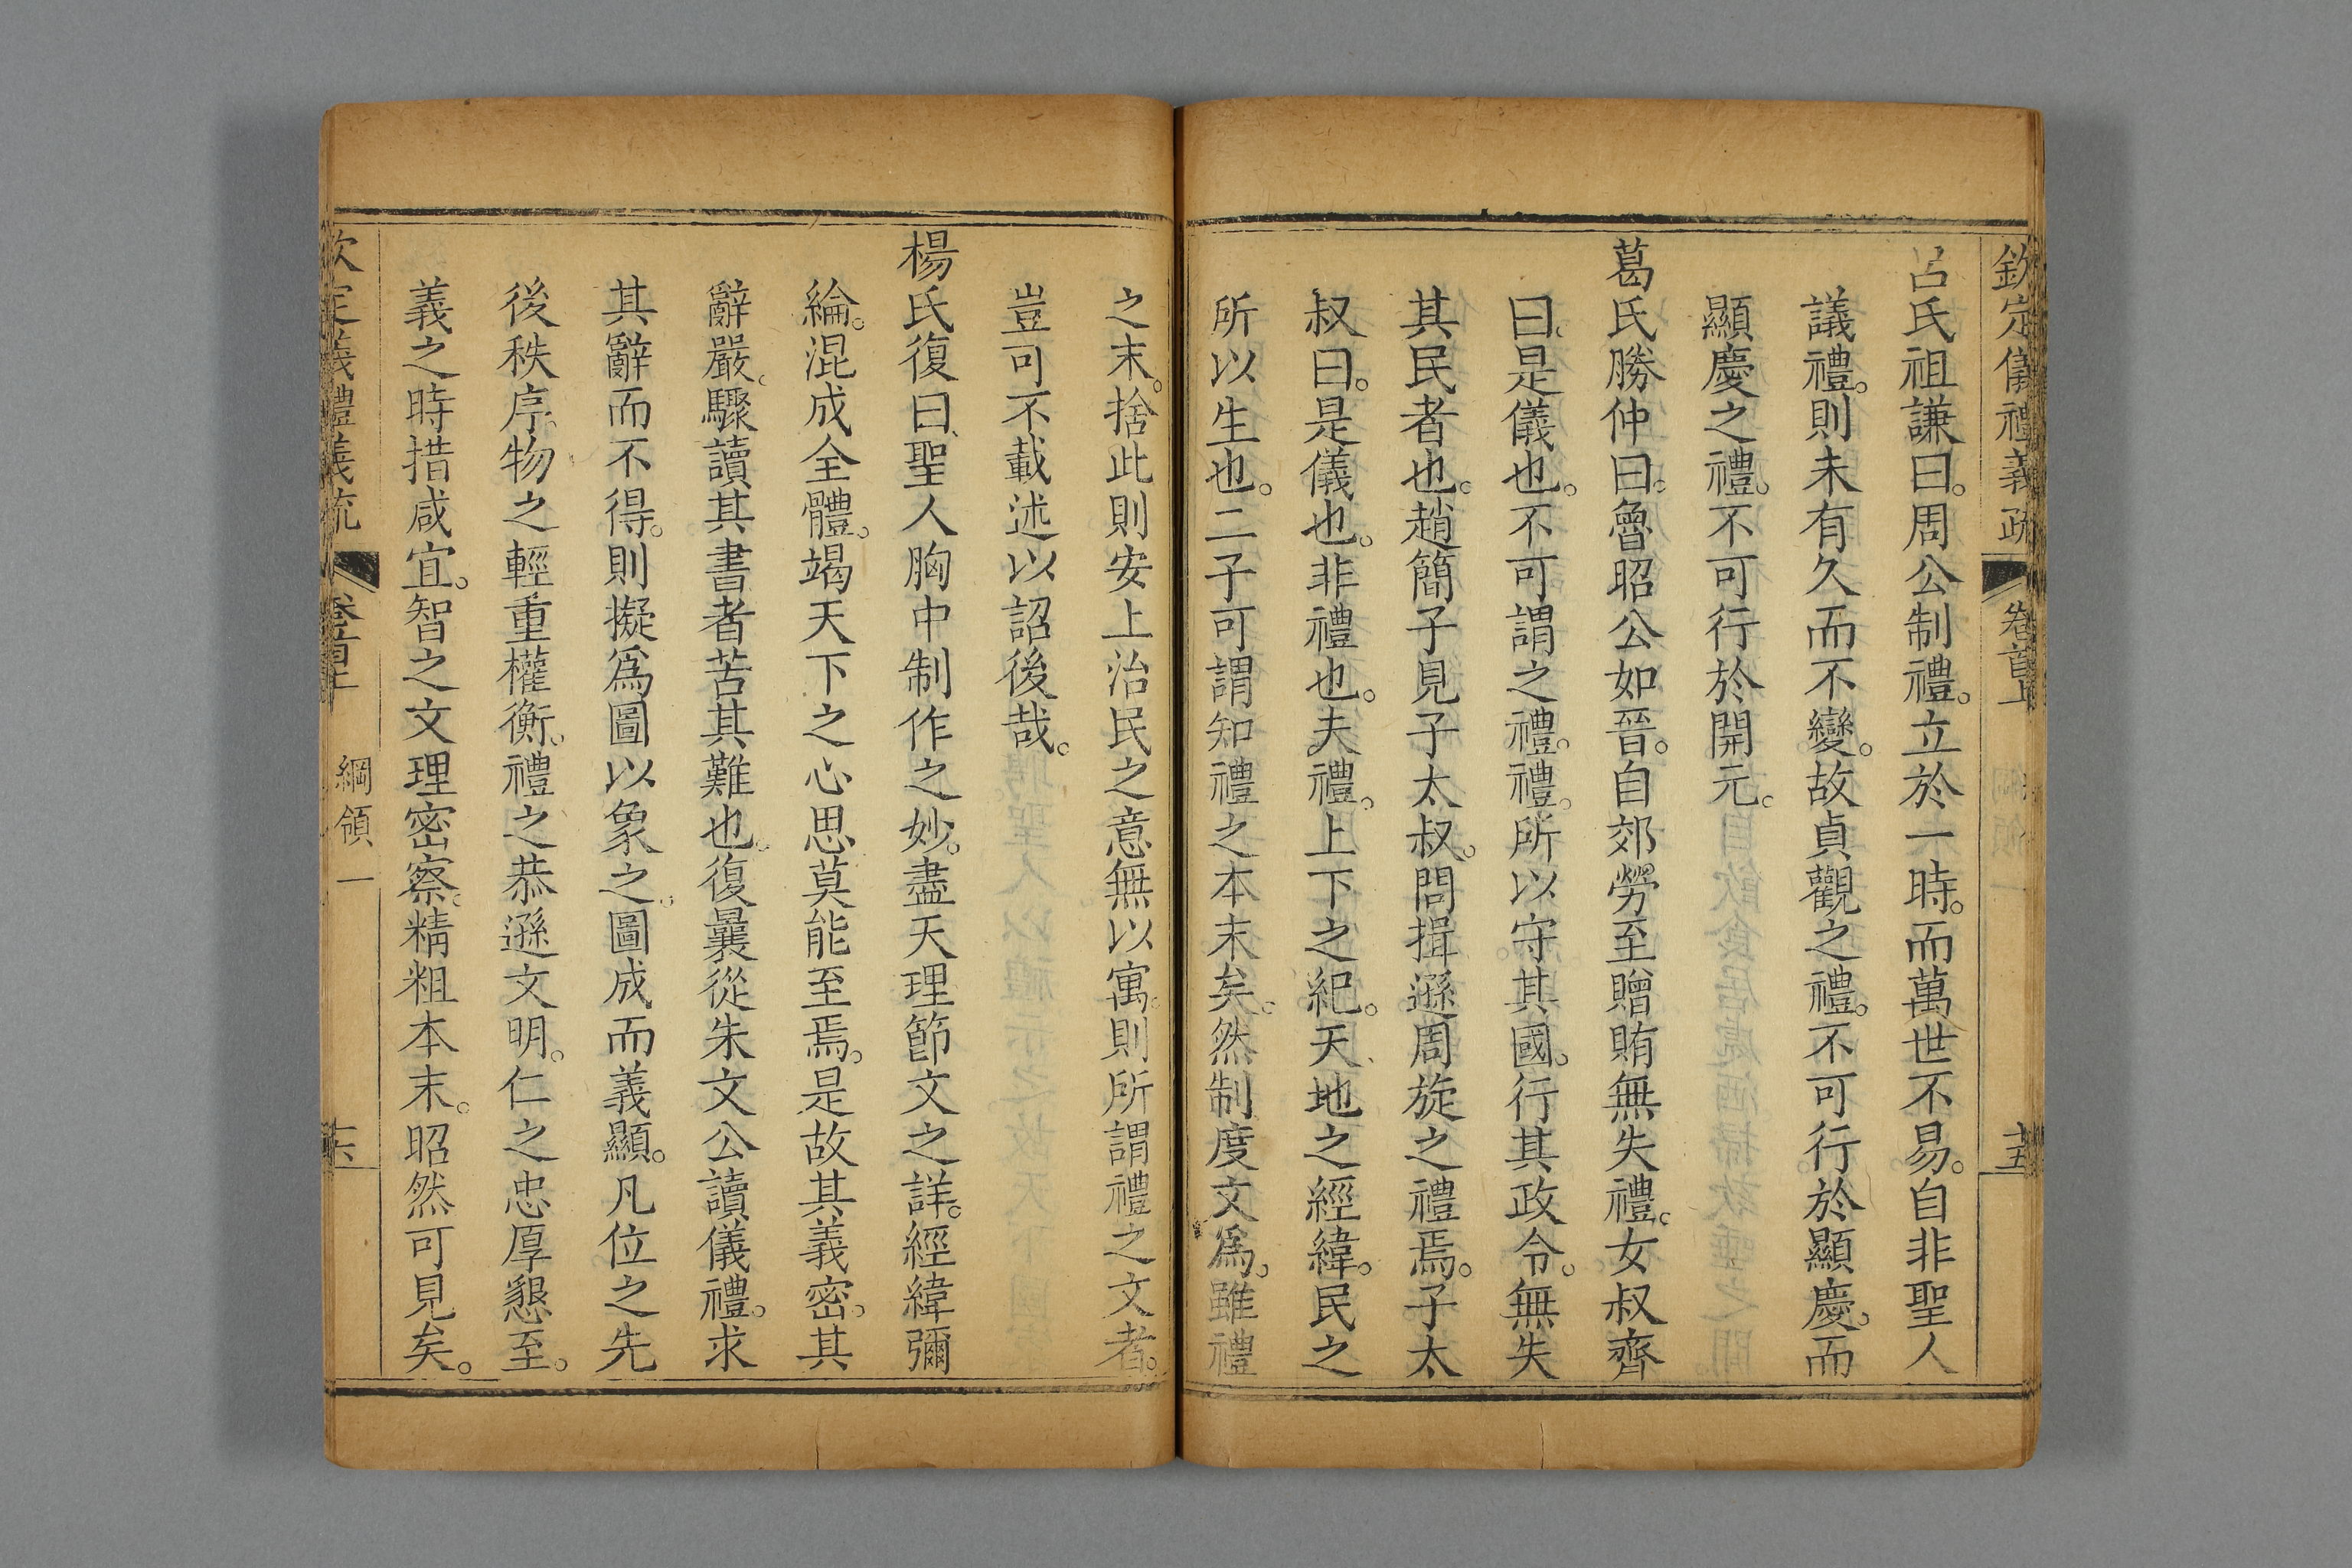 欽定儀禮義疏 卷首上 十五
呂氏祖謙曰。周公制禮。立於一時。而萬世不易。自非聖人
議禮。則未有久而不變。故貞觀之禮。不可行於顯慶。而
顯慶之禮。不可行於開元。
葛氏勝仲曰。魯昭公如晉。自郊勞至贈賄無失禮。女叔齊
曰。是儀也。不可謂之禮。禮。所以守其國。行其政令。無失
其民者也。趙簡子見子太叔。問揖遜周旋之禮焉。子太
叔曰。是儀也。非禮也。夫禮。上下之紀。天地之經緯。民之
所以生也。二子可謂知禮之本末矣。然制度文爲。雖禮
之末。捨此則安上治民之意無以寓。則所謂禮之文者。
豈可不載述以詔後哉。
楊氏復曰。聖人胸中制作之妙。盡天理節文之詳。經緯彌
綸。混成全體。竭天下之心思莫能至焉。是故其義密。其
辭嚴。驟讀其書者苦其難也。復曩從朱文公讀儀禮。求
其辭而不得。則擬爲圖以象之。圖成而義顯。凡位之先
後秩序。物之輕重權衡。禮之恭遜文明。仁之忠厚懇至。
義之時措咸宜。智之文理密察。精粗本末。昭然可見矣。
欽定義禮義疏 卷首上 綱領一 十六